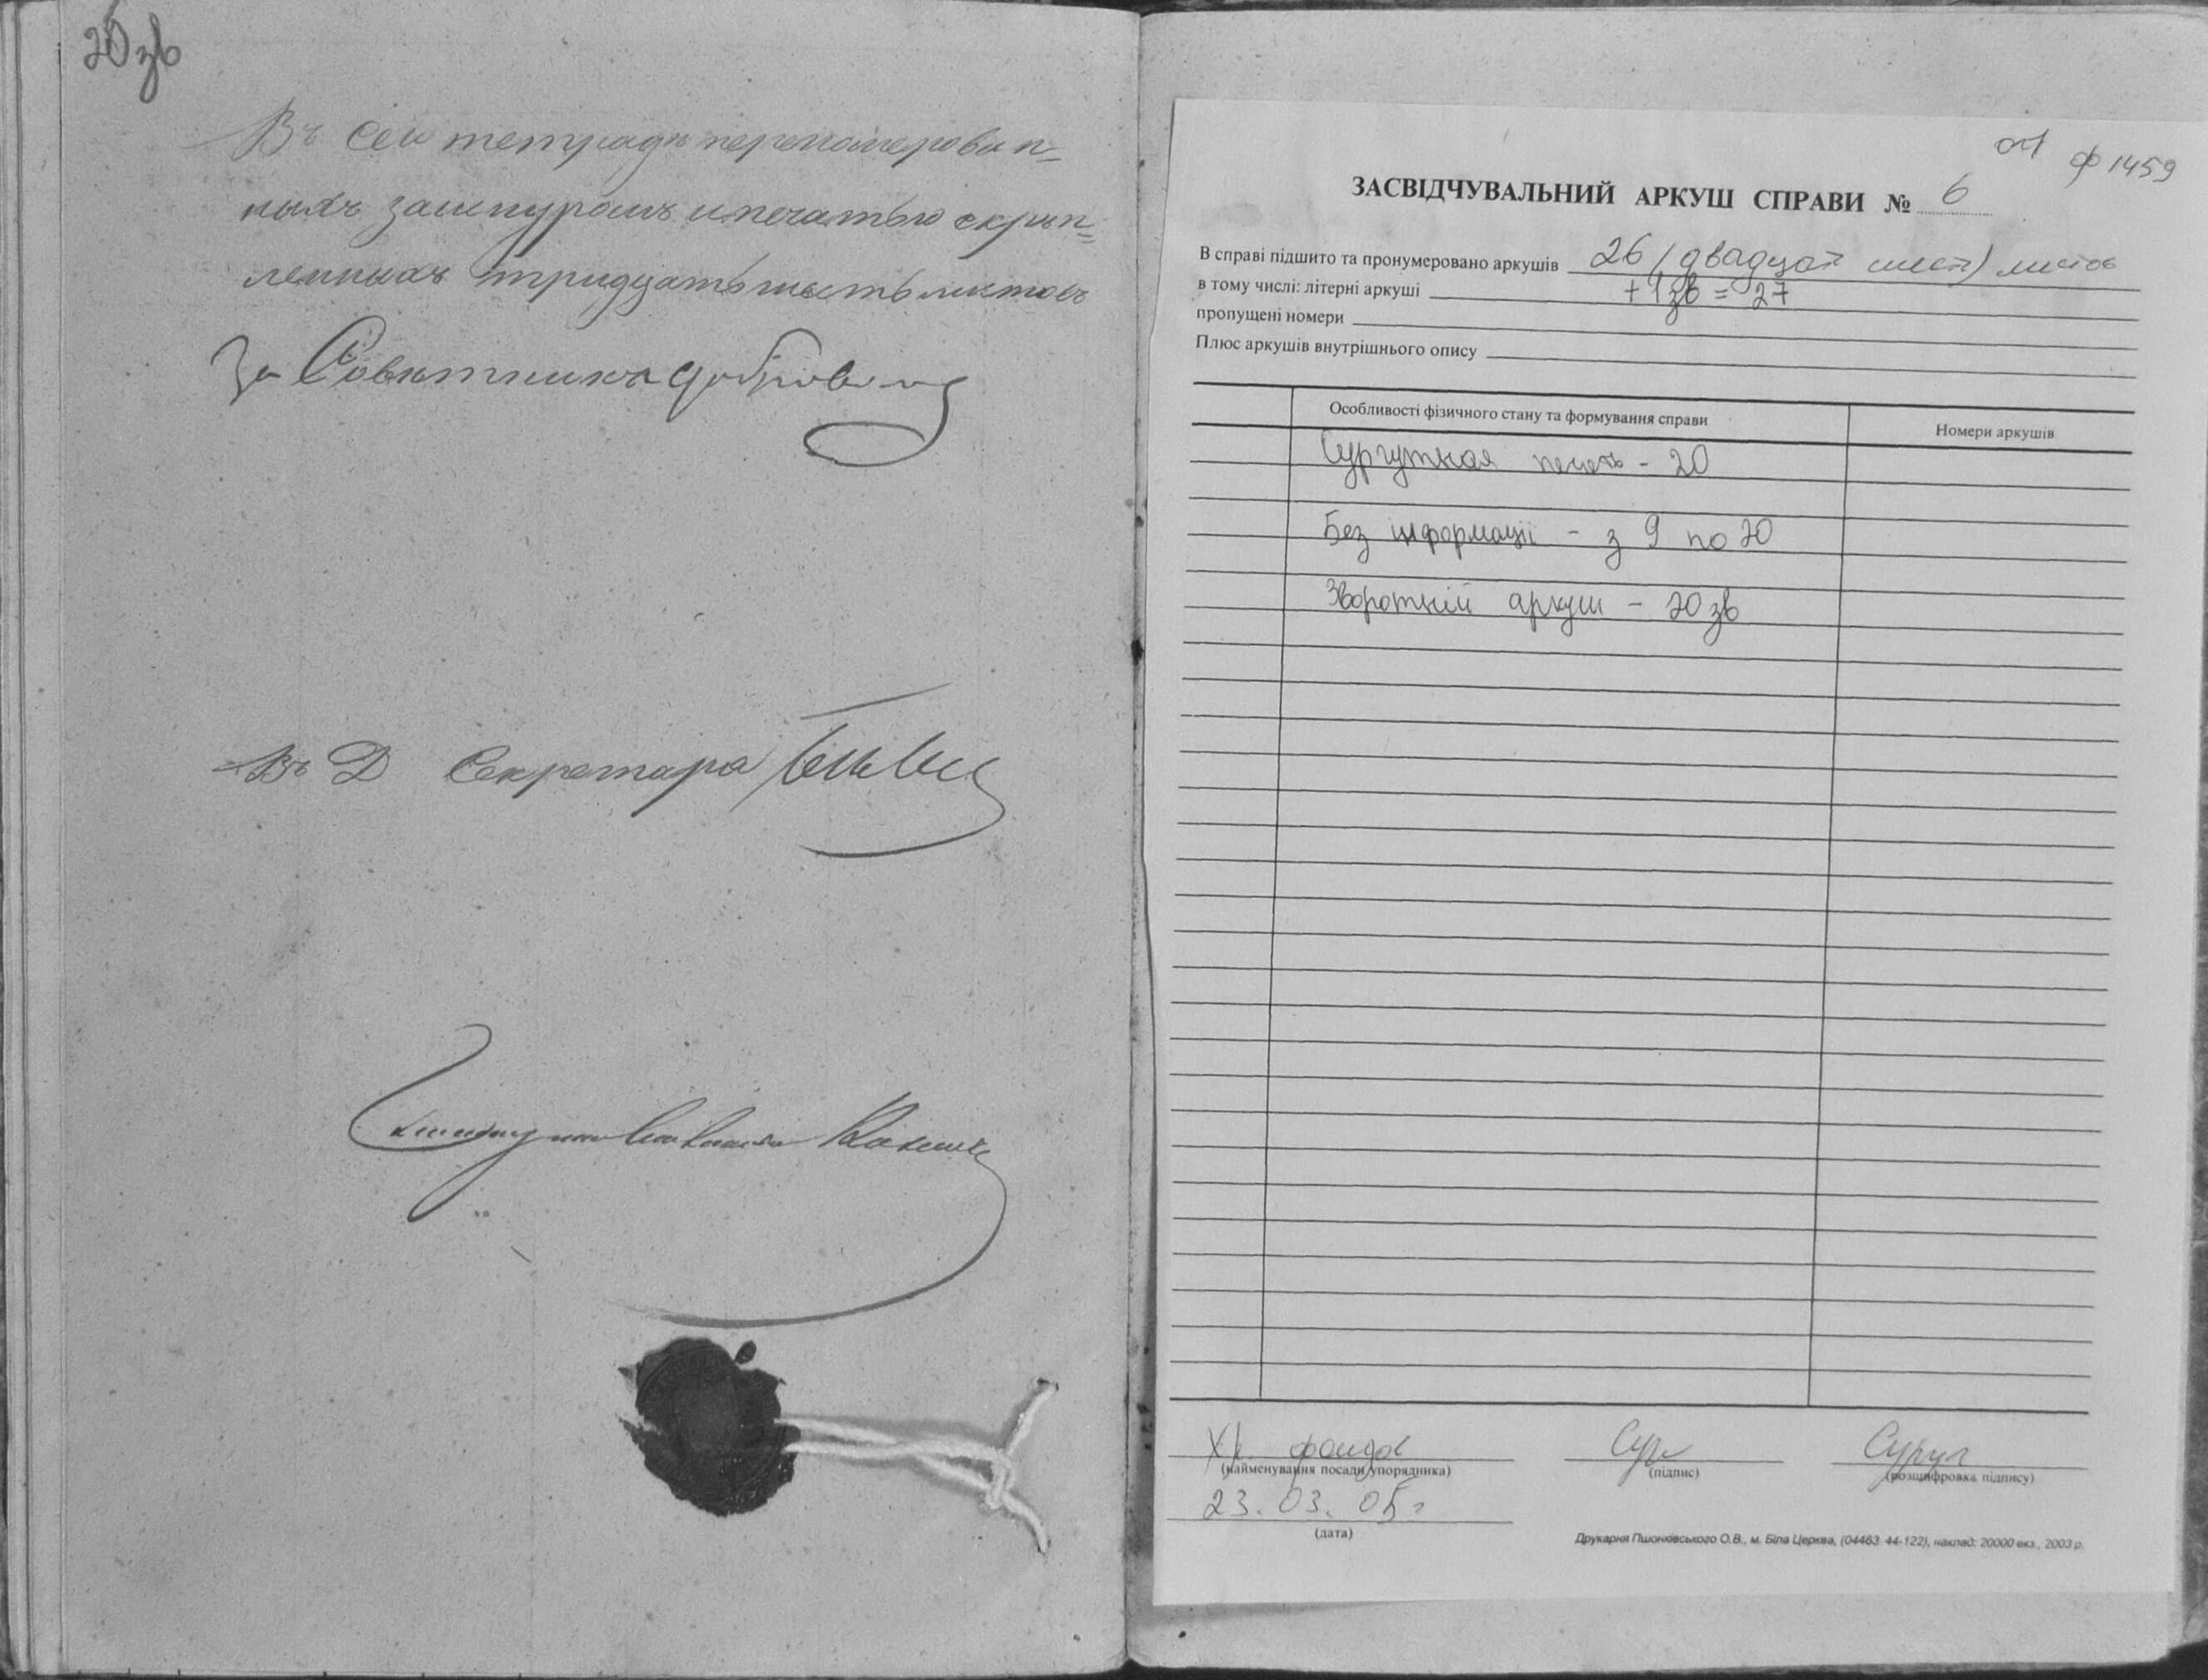 20 зв
Въ сей тетради перенумерован=
ныхъ зашнуромъ и печатью скрѣп=
ленныхъ тридцать шесть листовъ
За Совѣтника
Въ Д Секретара
оп 1 ф 1459
ЗАСВІДЧУВАЛЬНИЙ АРКУШ СПРАВИ № 6
В справі підшито та пронумеровано аркушів 26 (двадцат шест) листов
в тому числі: літерні аркуші + 1 зв = 27
пропущені номери
Плюс аркушів внутрішнього опису
Особливості фізичного стану та формування справи
Номери аркушів
Сургутная печать - 20
Без інформації - з 9 по 20
Зворотній аркуш - 20 зв
Хр. фондов
(найменування посади упорядника)
(підпис)
(розшифровка підпису)
23. 03. 05 г
(дата)
Друкарня Пшонківського О.В., м. Біла Церква, (04463 44-122), наклад: 20000 екз., 2003 р.